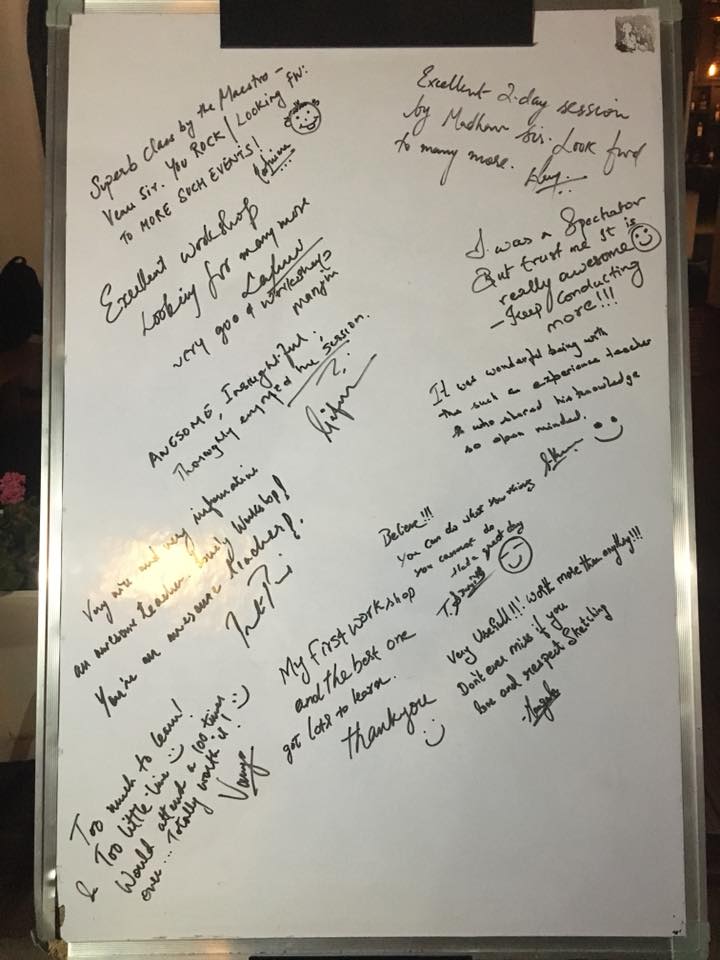 Superb Class by the Maestro –
Venu Sir. You ROCK! Looking FW:
TO MORE SUCH EVENTS!
Excellent workshop
Looking for many more
very good workshop
margin
AWESOME, Insightful.
Thoroughly enjoyed the session.
Very nice and very informative
an awesome teacher. Lovely Workshop!
You're an awesome teacher!.
Too much to learn!
& Too little time
Would attend a 100 times
over... Totally worth it!
Vanya
Excellent 2-day session
by Madhav sir. Look fwd
to many more.
I was a Spectator
But trust me It is
really awesome
– Keep conducting
more!!!
It was wonderful being with
the such an experience teacher
& who shared his knowledge
so open minded.
Believe!!!
You can do what you thing
you cannot do
that a great day
My First workshop
and the best one
got lots to learn.
thank you
Very Useful!!! Worth more than anything!!!
Don't ever miss if you
love and respect Sketching